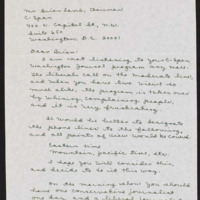 Mr. Brian Lamb, Chairman
C-Span
400 N. Capitol St., N.W.
Suite 650
Washington D.C. 20001
Dear Brian:
I am now listening to your C-Span
Washington Journal program any
The liberals call on the moderate line,
and when you have two guests
most alike, the program is taken over
by whining, complaining people,
and it is very frustrating.
It would be better to designate
the phone lines to the following,
and all points of view would be
Eastern time
Mountain, pacific time, etc.
I hope you will consider this,
and decide to do it this way.
On the morning when you should
have one conservative journalist
one has, and a liberal